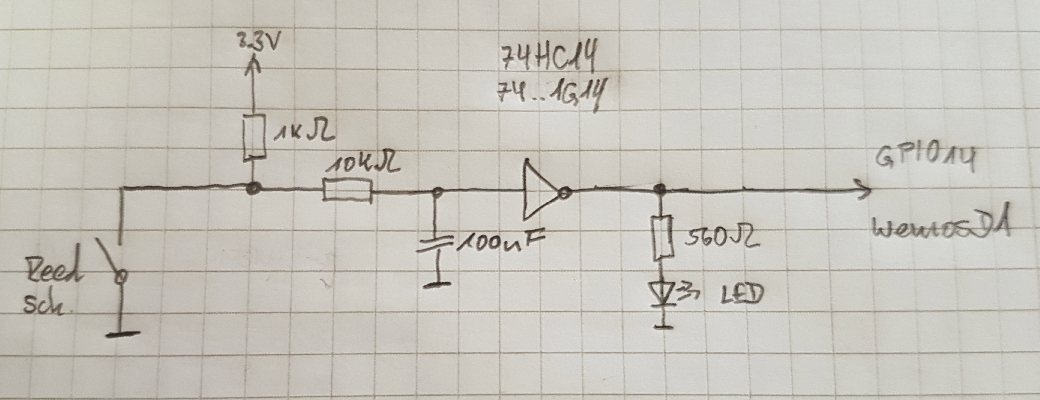 3.3V
74HC14
74..1G14
1KΩ
10KΩ
GPIO14
Wemos D1
100nF
560Ω
Reed
Sch.
LED